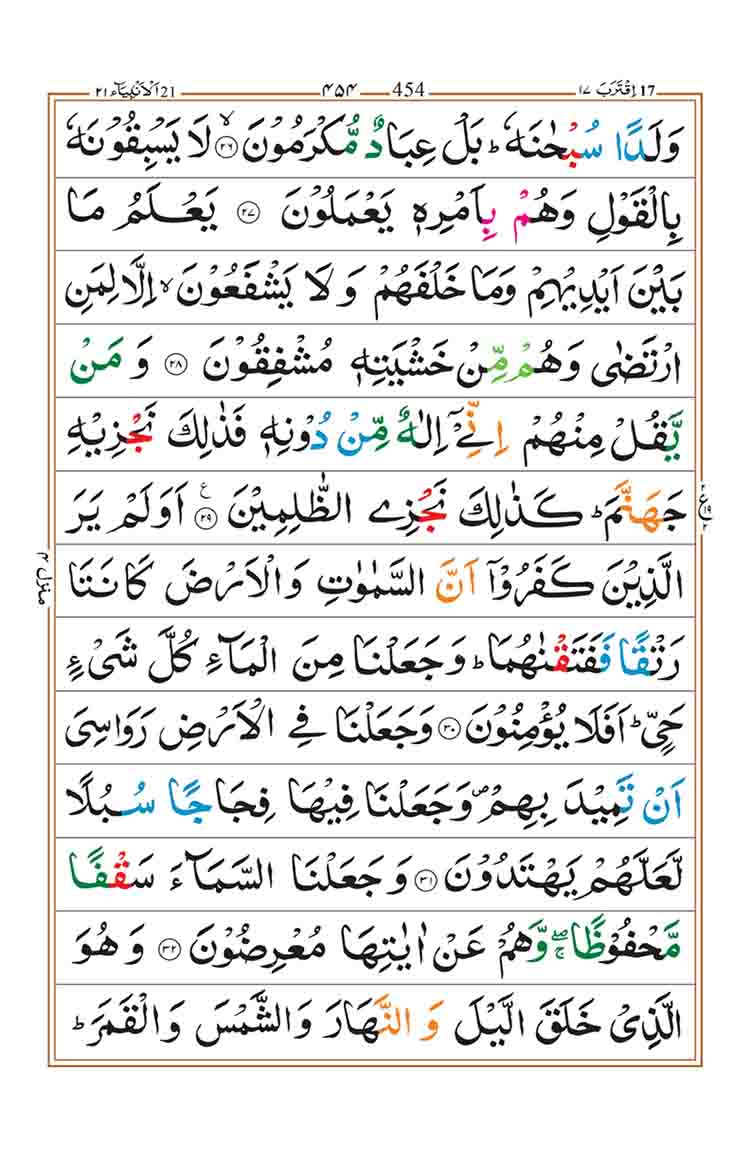 اِقْتَرَبَ ١٧ 17 454 ۴۵۴ اَلْاَنْۢبِيَآء ٢١ 21
وَلَدًا سُبْحٰنَهٗ ؕ بَلْ عِبَادٌ مُّكْرَمُوْنَ ۙ‏﴿۲۶﴾ لَا يَسْبِقُوْنَهٗ
بِالْقَوْلِ وَهُمْ بِاَمْرِهٖ يَعْمَلُوْنَ ﴿۲۷﴾ يَعْلَمُ مَا
بَيْنَ اَيْدِيْهِمْ وَمَا خَلْفَهُمْ وَلَا يَشْفَعُوْنَ ۙ اِلَّا لِمَنِ
ارْتَضٰى وَهُمْ مِّنْ خَشْيَتِهٖ مُشْفِقُوْنَ ﴿۲۸﴾ وَمَنْ
يَّقُلْ مِنْهُمْ اِنِّىْۤ اِلٰهٌ مِّنْ دُوْنِهٖ فَذٰلِكَ نَجْزِيْهِ
جَهَنَّمَ ؕ كَذٰلِكَ نَجْزِى الظّٰلِمِيْنَ ﴿۲۹﴾ ع اَوَلَمْ يَرَ
الَّذِيْنَ كَفَرُوْۤا اَنَّ السَّمٰوٰتِ وَالْاَرْضَ كَانَتَا
رَتْقًا فَفَتَقْنٰهُمَا ؕ وَجَعَلْنَا مِنَ الْمَآءِ كُلَّ شَىْءٍ
حَىٍّ ؕ اَفَلَا يُؤْمِنُوْنَ ﴿۳۰﴾ وَجَعَلْنَا فِى الْاَرْضِ رَوَاسِىَ
اَنْ تَمِيْدَ بِهِمْ ۪ وَجَعَلْنَا فِيْهَا فِجَاجًا سُبُلًا
لَّعَلَّهُمْ يَهْتَدُوْنَ ﴿۳۱﴾ وَجَعَلْنَا السَّمَآءَ سَقْفًا
مَّحْفُوْظًا ۖۚ وَّهُمْ عَنْ اٰيٰتِهَا مُعْرِضُوْنَ ﴿۳۲﴾ وَهُوَ
الَّذِىْ خَلَقَ الَّيْلَ وَالنَّهَارَ وَالشَّمْسَ وَالْقَمَرَ ؕ
ع ۱۹ ۲
منزل ۴